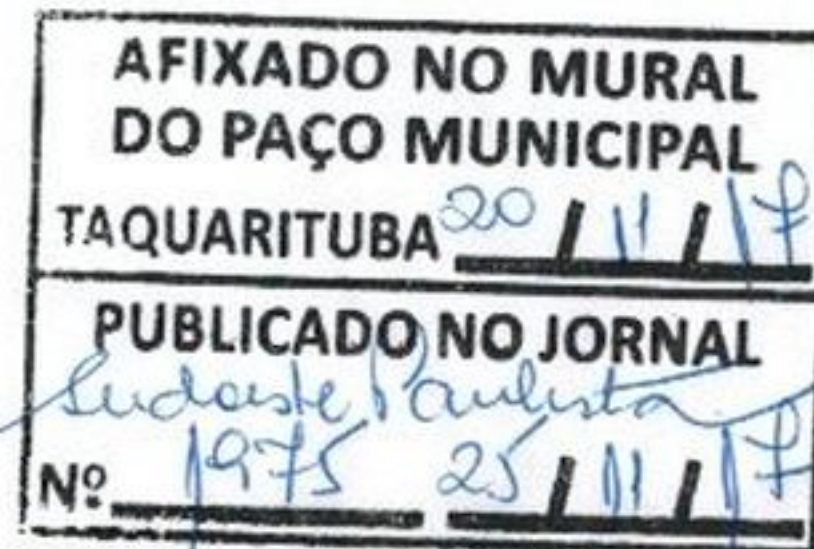 AFIXADO NO MURAL
DO PAÇO MUNICIPAL
TAQUARITUBA 20 / 11 / 17
PUBLICADO NO JORNAL
Sudoeste Paulista
Nº 1975 25 / 11 / 17